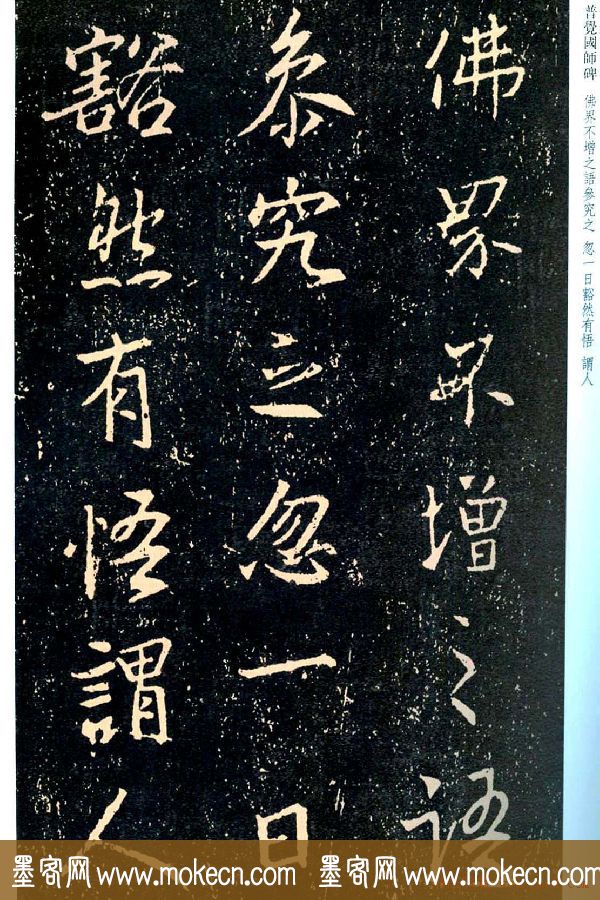 普覺國師碑 佛界不增之語參究之 忽一日豁然有悟 謂人
佛界不增之語
叅究之忽一日
豁然有悟謂人
墨客网 www.mokecn.com 墨客网 www.mokecn.com